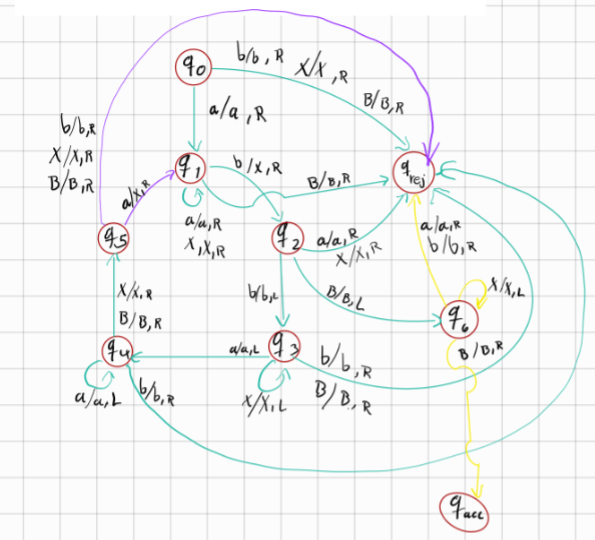 b/b, R X/X, R
q0
B/B, R
a/a, R
b/b, R
X/X, R
B/B, R
q1
b/X, R
B/B, R
qrej
a/X, R
a/a, R
X,X,R
q5
q2
a/a, R
X/X, R
a/a, R
b/b, R
X/X, L
X/X, R
B/B, R
b/b, L
B/B, L
q6
B/B, R
q4
a/a, L
q3
b/b, R
B/B, R
a/a, L
b/b, R
X/X, L
qacc